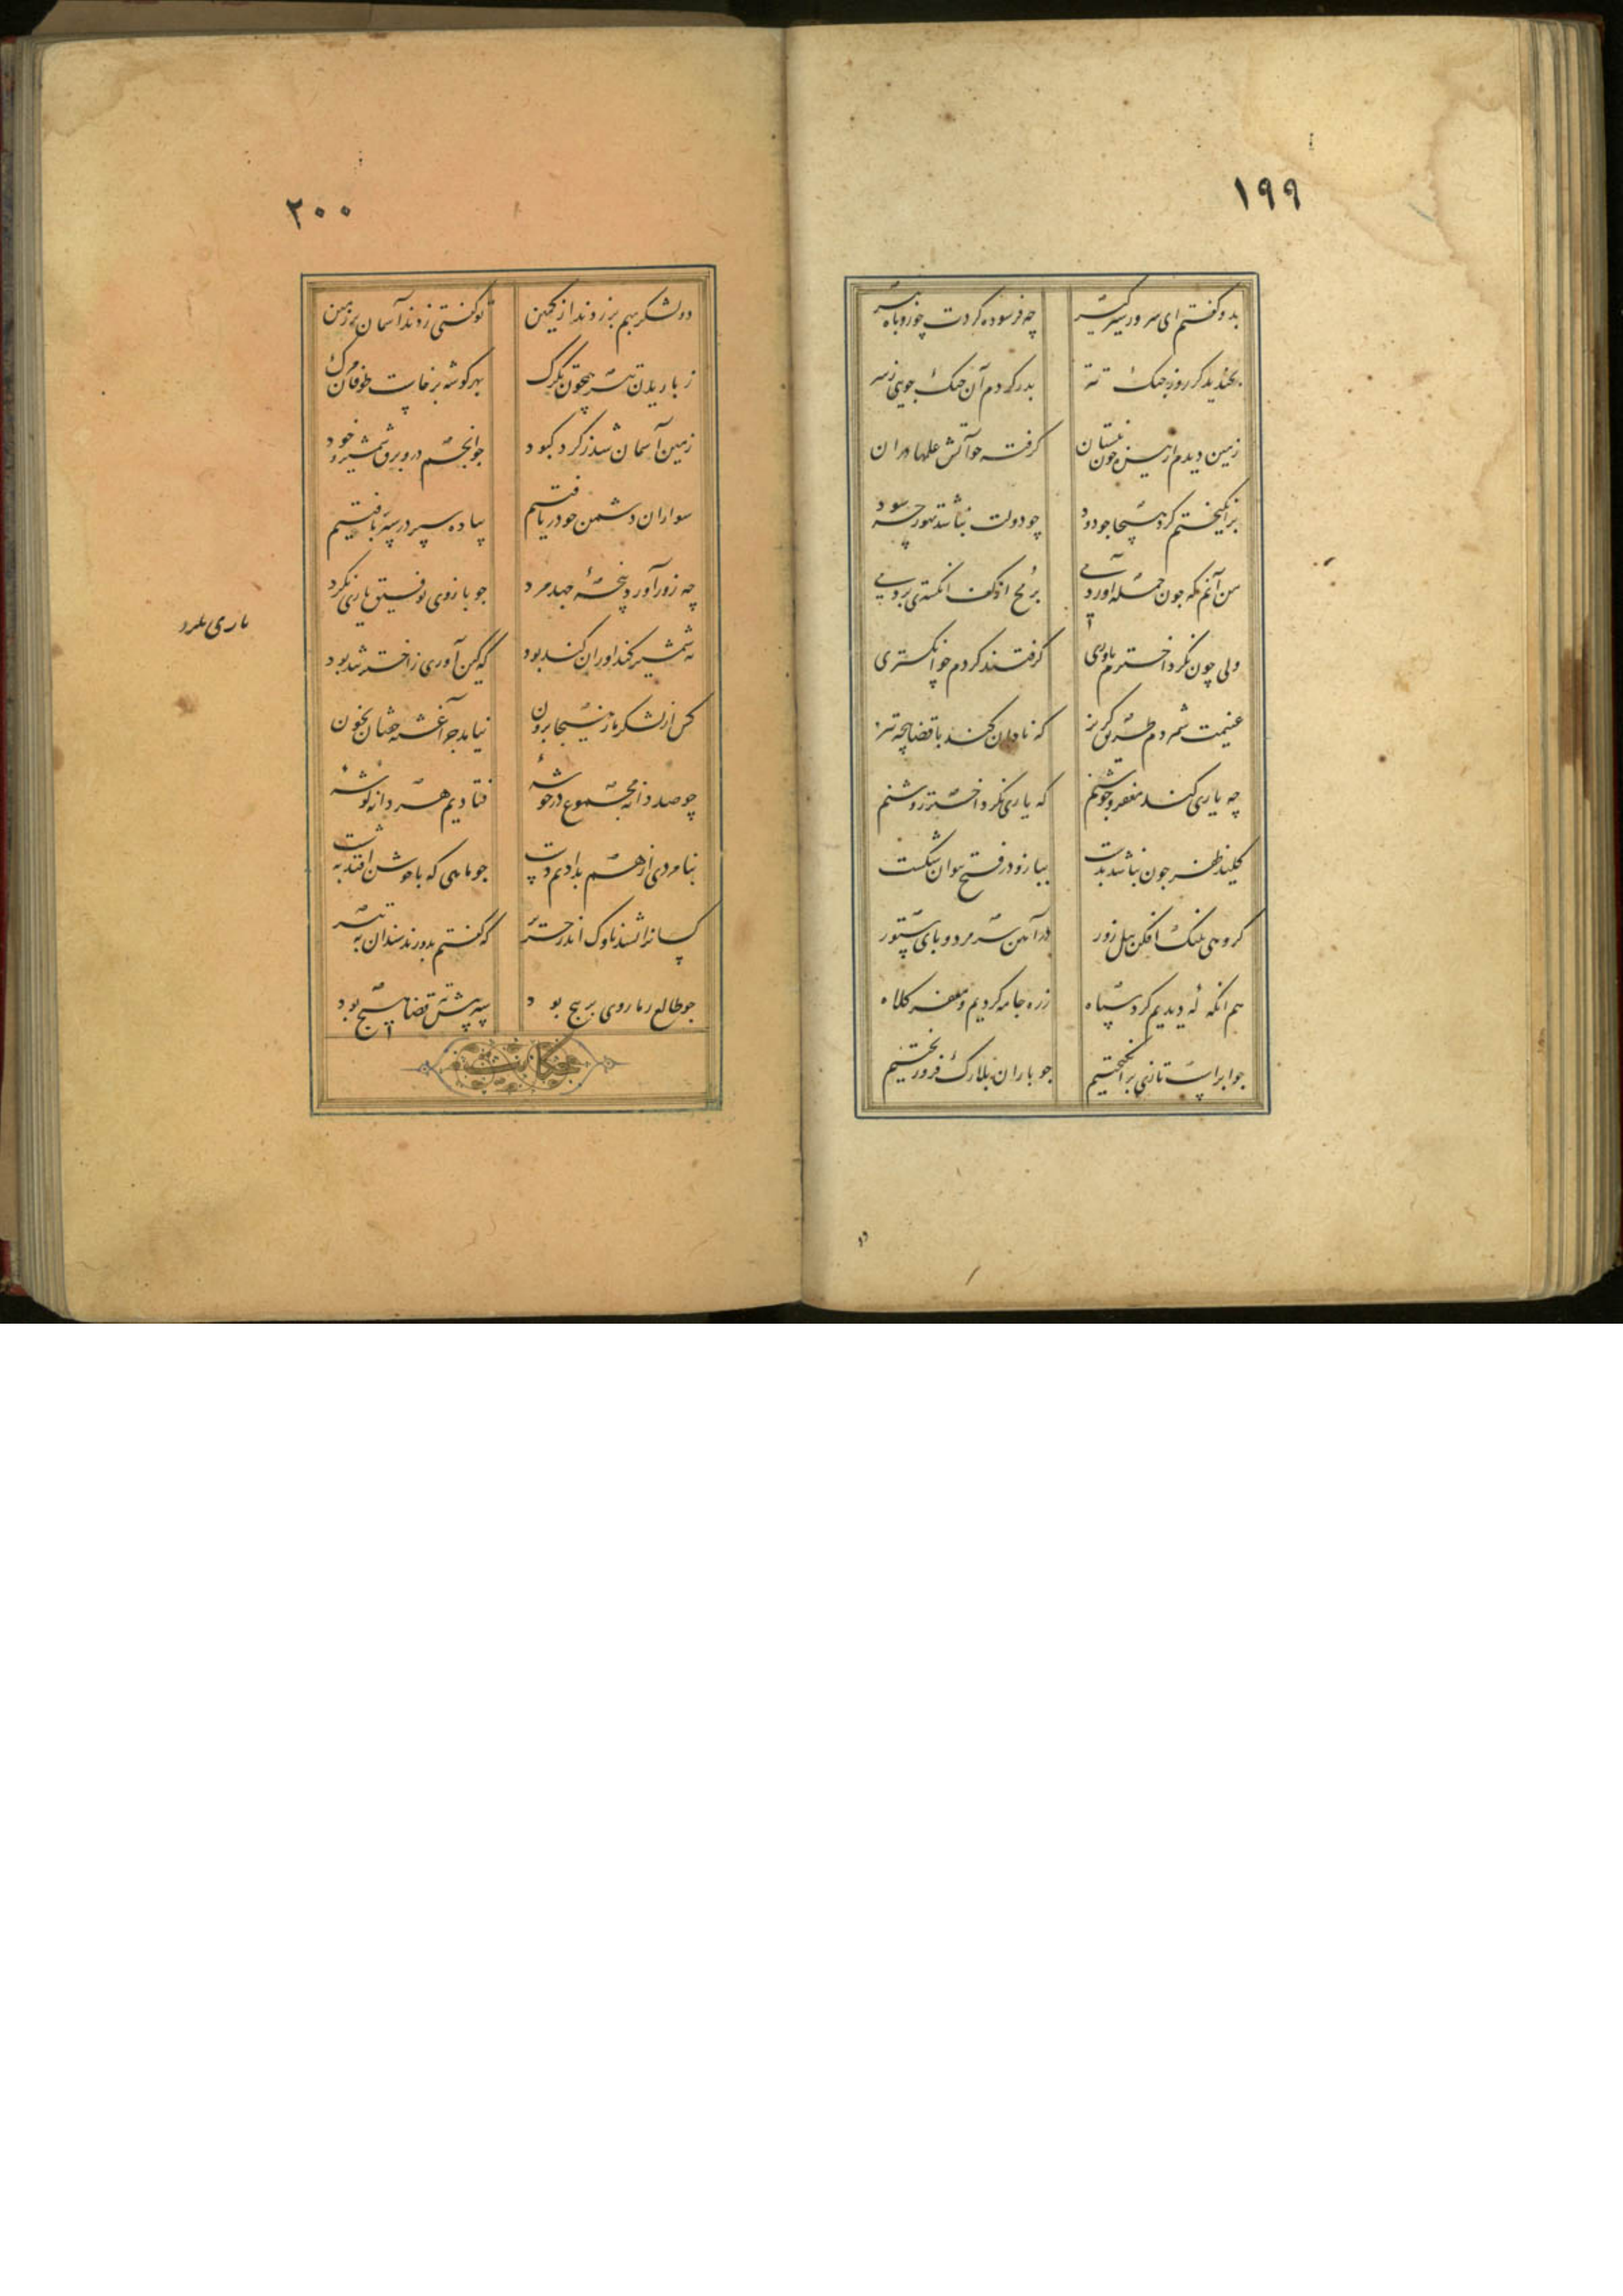 ۱۹۹
بدو گفتم ای سرور شیر گیر چه فرسوده کردت چو روباه پیر
بخندید کز روز جنک تتر بدر کردم آن جنک جویی ز سر
زمین دیدم از نیزه چون نیستان کرفته جو آتش علمها در ان
برانکیختم کرد هیجا جو دود چو دولت نباشد تهور چه سود
من آنم که جون حمله آوردمی برمح از کف انکشتری بردمی
ولی چون نکرد اخترم یاوری کرفتند کردم جو انکشتری
غنیمت شمردم طریق کریز که نادان کند با قضا پنجه تیز
چه یاری کند مغفر و جوشنم که یاری نکرد اختر روشنم
کلید ظفر جون نباشد بدست ببازو در فتح نتوان شکست
کروهی پلنک افکن پیل زور در آهن سر مرد و پای ستور
هم انکه که دیدیم کرد سپاه زره جامه کردیم و مغفر کلاه
جو ابر اسپ تازی برانکیختیم جو باران بلارک فرو ریختیم
۲۰۰
دو لشکر بهم بر زدند از کمین تو کفتی زدند آسمان بر زمین
ز باریدن تیر همچون تکرک بهر کوشه برخاست طوفان مرک
زمین آسمان شد ز کرد کبود جو انجم درو برق شمشیر و خود
سواران دشمن جو دریافتیم پیاده سپر در سپر بافتیم
چه زور آورد پنجهٔ جهد مرد جو بازوی توفیق یاری نکرد
یاری نکرد
نه شمشیر کنداوران کند بود که کین آوری ز اختر تند بود
کس از لشکر ما ز هیجا برون نیامد جز آغشته خفتان بخون
چو صد دانه مجموع در خوشهٔ فتادیم هر دانه کوشهٔ
بنامردی از هم بدادیم دست جو ماهی که با جوشن افتد به شست
کسانرا نشد ناوک اندر حریر که کفتم بدوزند سندان به تیر
جو طالع ز ما روی بر پیچ بود سپر پیش تیر قضا هیچ بود
حکایت